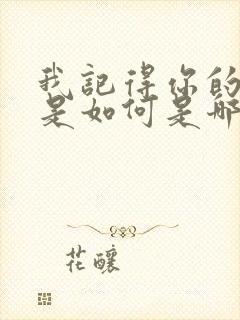 我記得你的
是如何是那
花釀